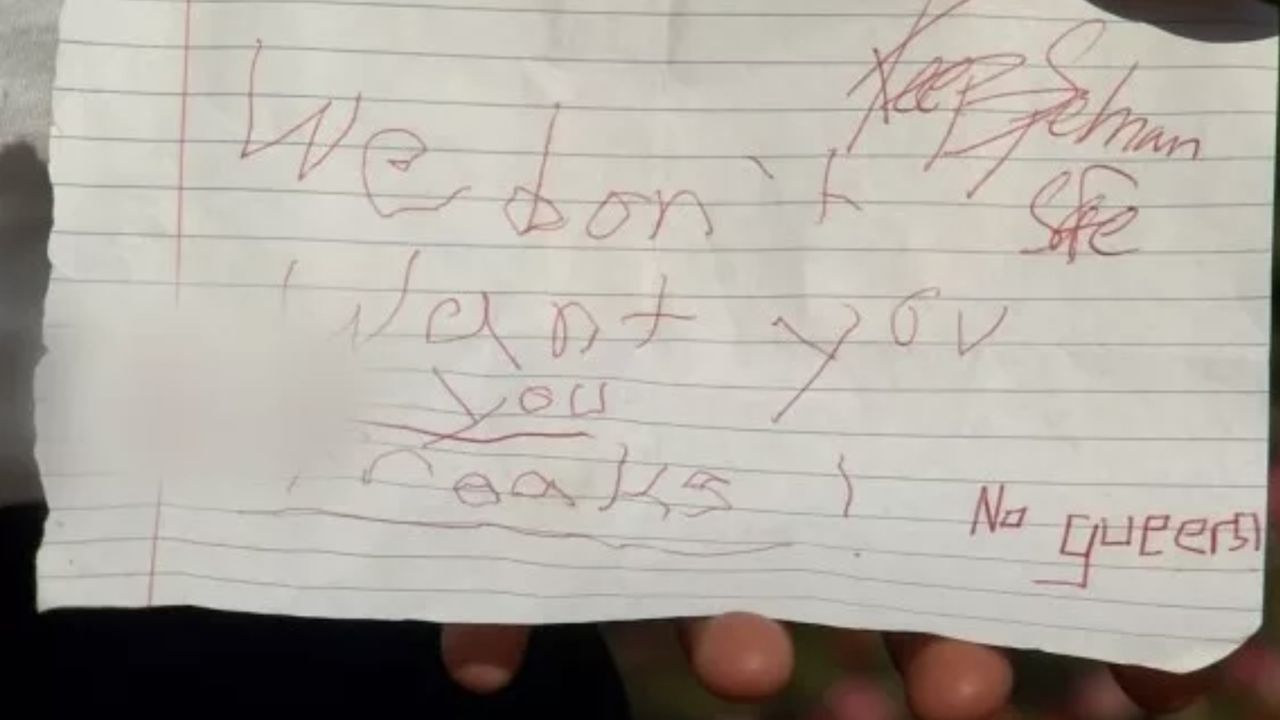 We don't
Keep Selman
Safe
Want you
you
reaks !
No queers!